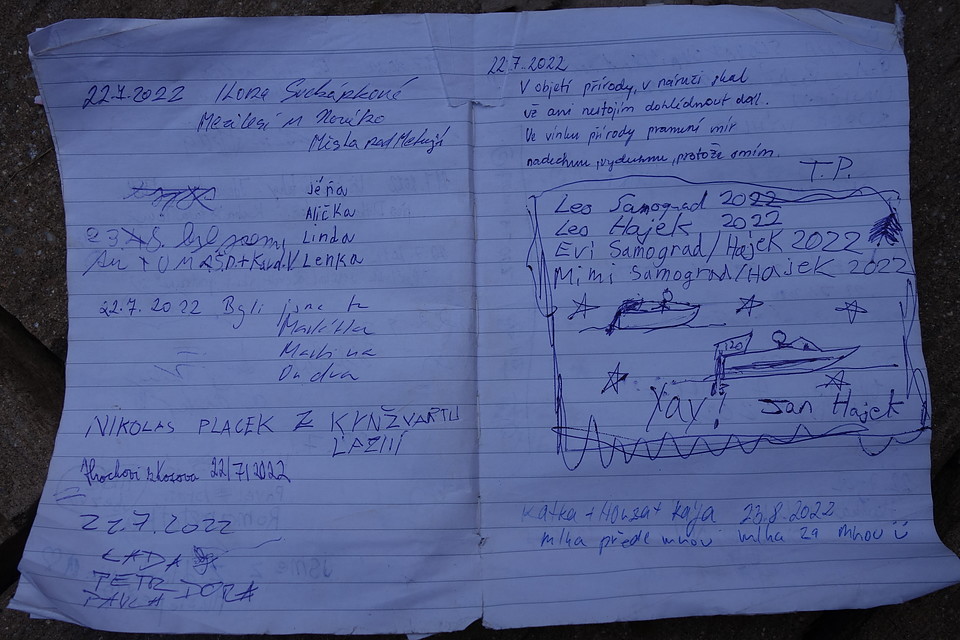 22.7.2022
Meziles
Jéňa
Alička
Linda
Lenka
22.7.2022 Byli jsme tu
Markétka
Martina
Ondra
NIKOLAS PLACEK Z KYNŽVARTU
LÁZNÍ
z Kosova 22/7/2022
22.7.2022
LADA
PETR DORA
PAVLA
22.7.2022
V objetí přírody, v náruzi skal
už ani nestojím dohlédnout dál.
Ve vínku přírody pramení mír
nadechnu, vydechnu, protože smím.
T.P.
Leo Samograd 2022
Leo Hajek 2022
Evi Samograd/Hajek 2022
Mimi Samograd/Hajek 2022
120
Yay! Jan Hajek
Katka + Honza + Kája 23.8.2022
mlha přede mnou mlha za mnou ü